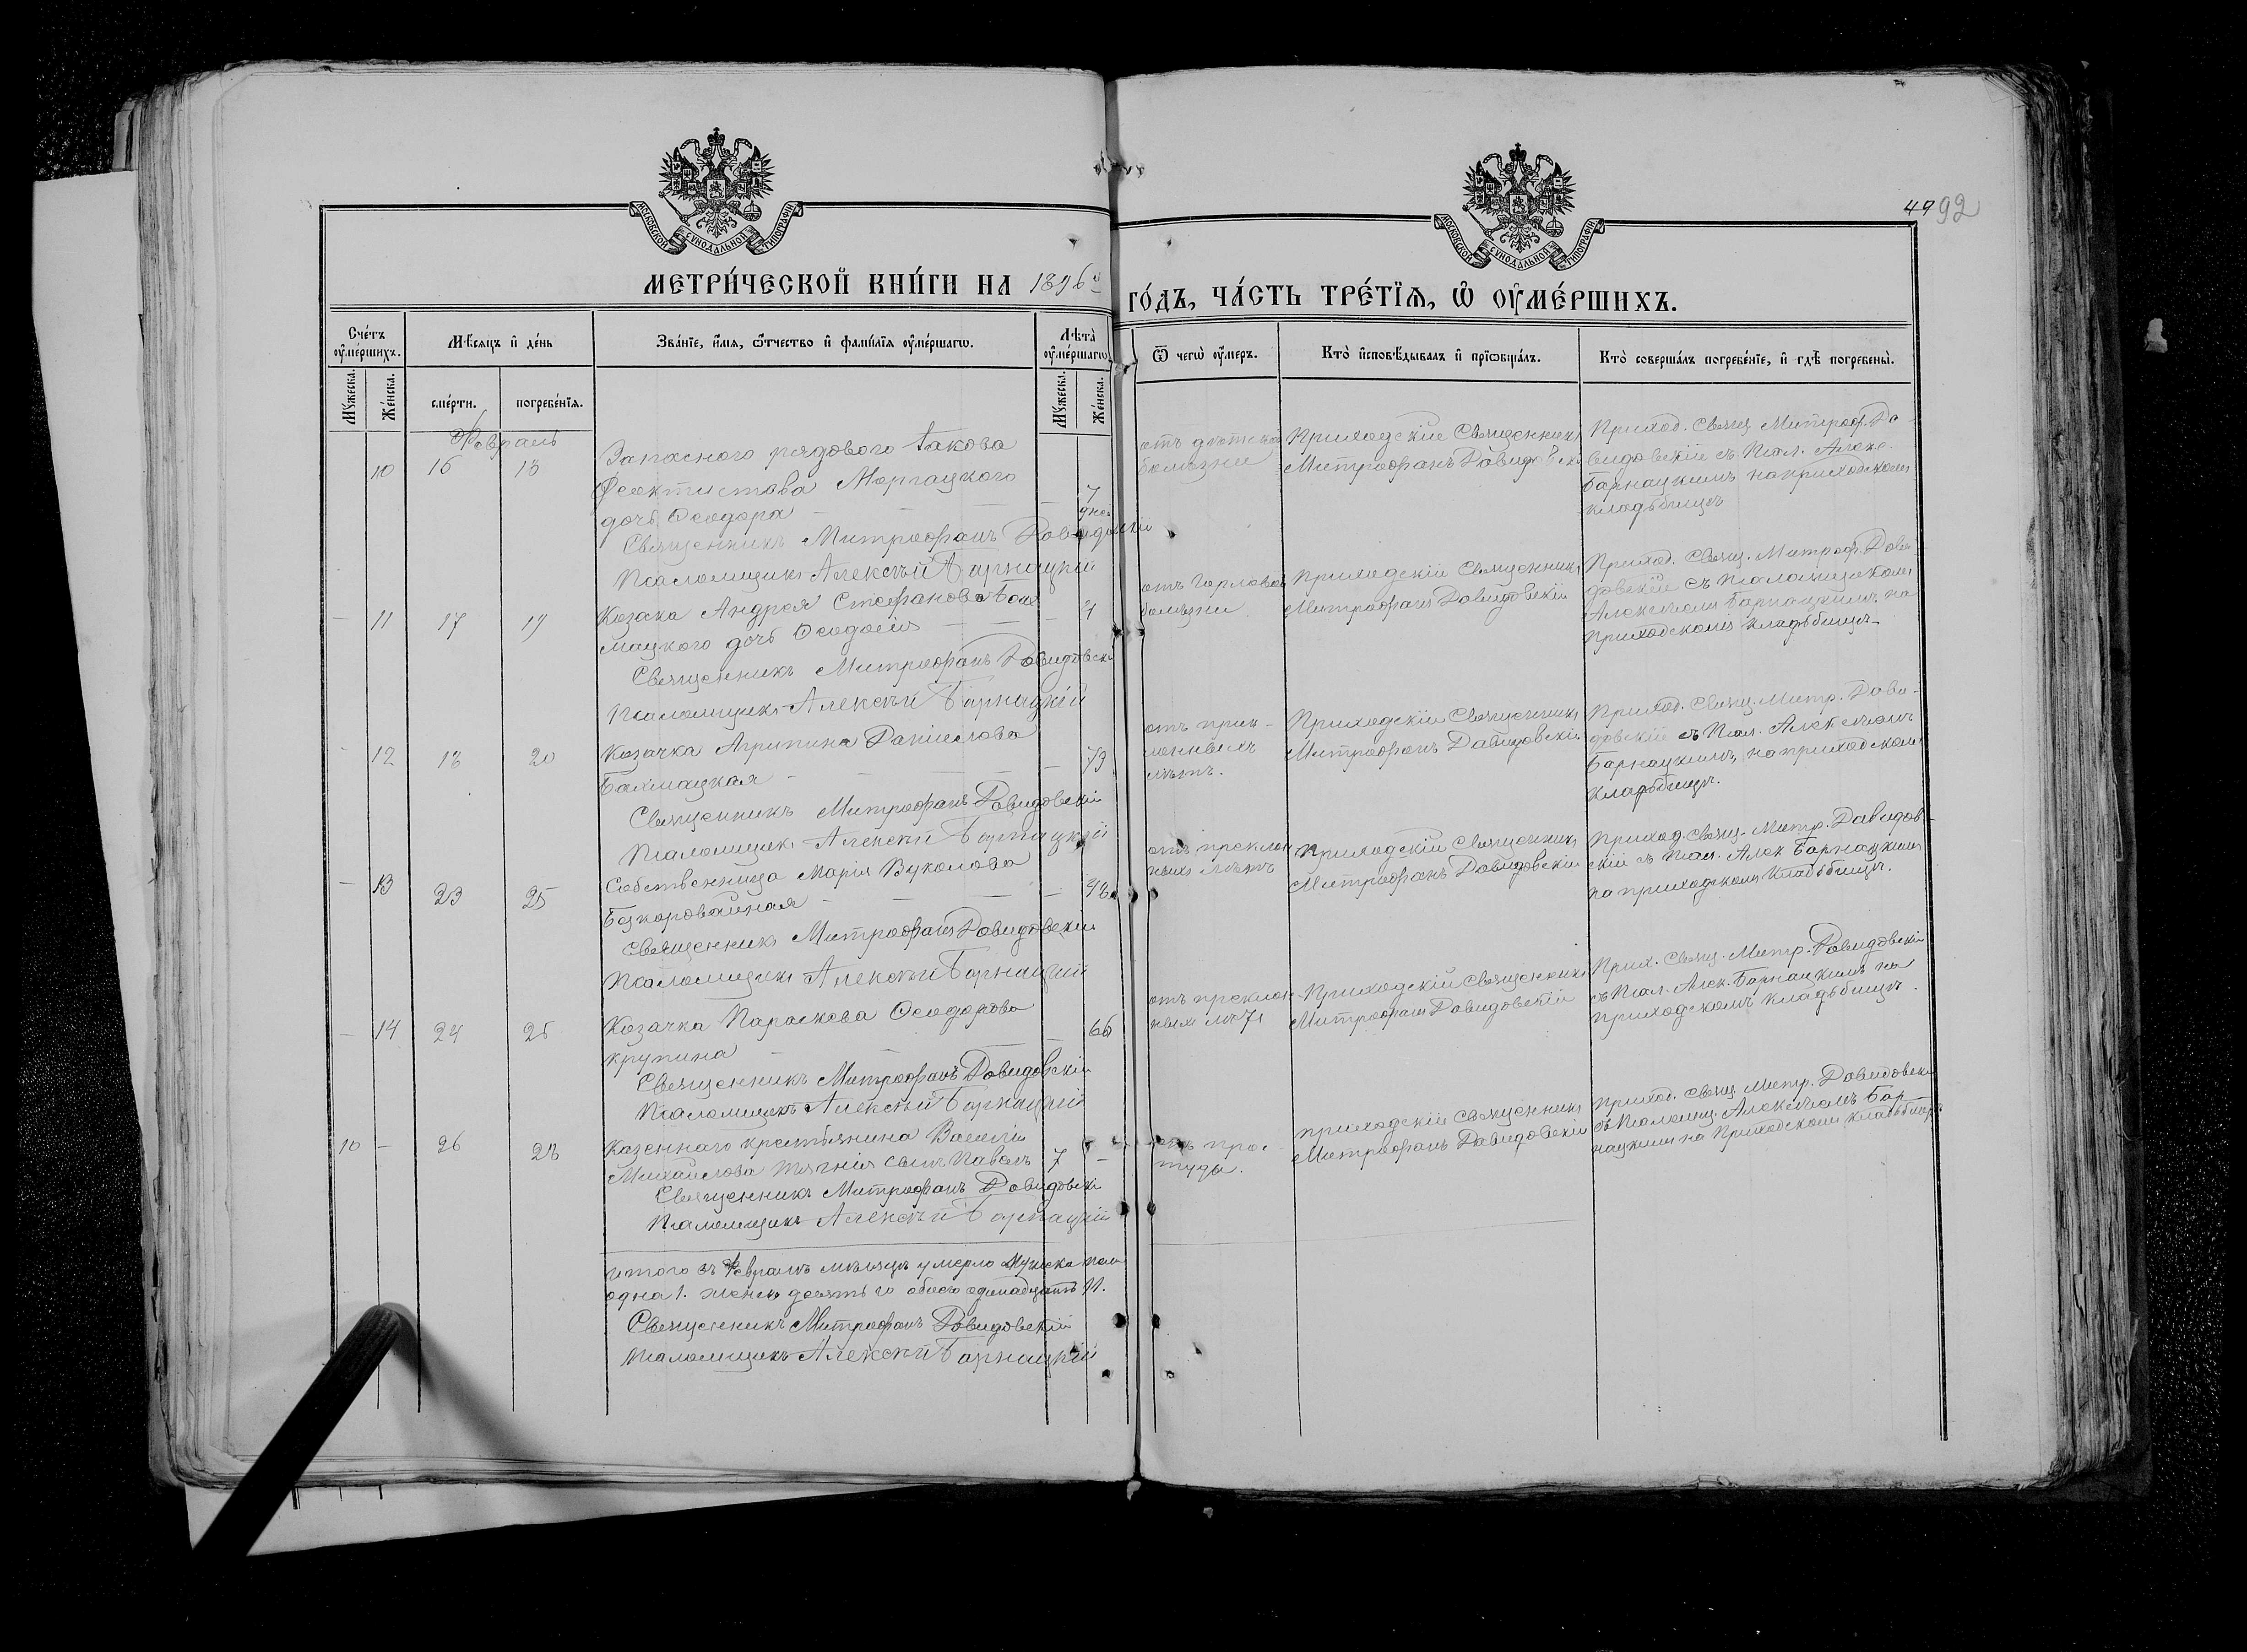 МОСКОВСКОЙ СѴНОДАЛЬНОЙ ТИПОГРАФІИ
МОСКОВСКОЙ СѴНОДАЛЬНОЙ ТИПОГРАФІИ
49 92
МЕТРИ́ЧЕСКОЙ КНИ́ГИ НА 1896й
ГО́ДЪ, ЧА́СТЬ ТРЕ́ТЇѦ, Ѡ҆ ОУ҆МЕ́РШИХЪ.
Сче́тъ оу҆ме́ршихъ.
Мѣ́сяцъ и҆ де́нь
Зва́нїе, и҆́мѧ, ѻ҆́тчество и҆ фами́лїѧ оу҆ме́ршагѡ.
Лѣ́та̀ оу҆ме́ршагѡ.
Ѿ чегѡ̀ оу҆́меръ.
Кто̀ и҆сповѣ́дывалъ и҆ прїѡбща́лъ.
Кто̀ соверша́лъ погребе́нїе, и҆ гдѣ̀ погребены̀.
Мꙋ́жеска.
Же́нска.
сме́рти.
погребе́нїѧ.
Мꙋ́жеска.
Же́нска.
Февраль
10 16 18
Запаснаго рядового Іакова
Феоктистова Моргацкого
дочь Ѳеодора — — — 7 дней
Священникъ Митрофанъ Давидовскій
Псаломщикъ Алексѣй Барнацкій
отъ дѣтской
болѣзни
Приходскій Священникъ
Митрофанъ Давидовскій
Приход. Свящ. Митроф. Да-
видовскій съ Псал. Алекс.
Барнацкимъ на приходскомъ
кладбищѣ
— 11 17 19
Козака Андрея Стефанова Бах
мацкого дочь Ѳеодосія — — — 7
Священникъ Митрофанъ Давидовскій
Псаломщикъ Алексѣй Барнацкій
отъ горловой
болѣзни
Приходскій Священникъ
Митрофанъ Давидовскій
Приход. Свящ. Митроф. Дави-
довскій съ Псаломщикомъ
Алексѣемъ Барнацкимъ на
приходскомъ кладьбищѣ
— 12 18 20
Козачка Агрипина Даніилова
Бахмацкая — — — — 73
Священникъ Митрофанъ Давидовскій
Псаломщикъ Алексѣй Барнацкій
отъ прек-
лонныхъ
лѣтъ.
Приходскій Священникъ
Митрофанъ Давидовскій
Приход. Свящ. Митр. Дави-
довскій съ Псал. Алексѣемъ
Барнацкимъ, на приходскомъ
кладьбищѣ.
— 13 23 25
Собственница Марія Вуколова
Безкоровайная — — — — 98
Священникъ Митрофанъ Давидовскій
Псаломщикъ Алексѣй Барнацкій
отъ преклон
ныхъ лѣтъ
Приходскій Священникъ
Митрофанъ Давидовскій
Приход. Свящ. Митр. Давидов-
скій съ Псал. Алек Барнацкимъ
на приходскомъ кладьбищѣ.
— 14 24 25
Козачка Параскева Ѳеодорова
Крупина — — — — 66
Священникъ Митрофанъ Давидовскій
Псаломщикъ Алексѣй Барнацкій
отъ преклон
ныхъ лѣтъ
Приходскій Священникъ
Митрофанъ Давидовскій
Прих. Свящ. Митр. Давидовскій
съ Псал. Алек. Барнацкимъ на
приходскомъ кладьбищѣ.
10 — 26 28
Казеннаго крестьянина Василія
Михайлова Тягнія сынъ Павелъ 7 —
Священникъ Митрофанъ Давидовскій
Псаломщикъ Алексѣй Барнацкій
отъ прос
туды.
приходскій Священникъ
Митрофанъ Давидовскій
приход. Свящ. Митр. Давидовскій
съ Псаломщ. Алексѣемъ Бар-
нацкимъ на Приходскомъ кладьбищѣ
итого въ Февралѣ мѣсяцѣ умерло мужска пола
одна 1. женск десять 10 обоего одинадцать 11.
Священникъ Митрофанъ Давидовскій
Псаломщикъ Алексѣй Барнацкій